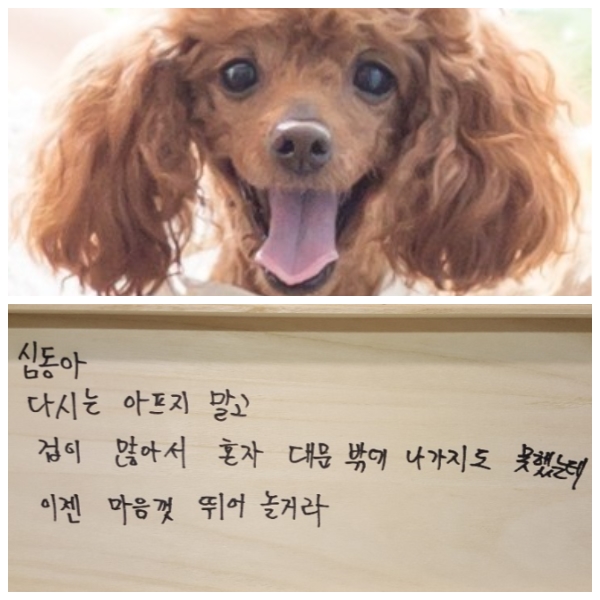 심동아
다시는 아프지 말고
겁이 많아서 혼자 대문 밖에 나가지도 못했는데
이젠 마음껏 뛰어 놀거라